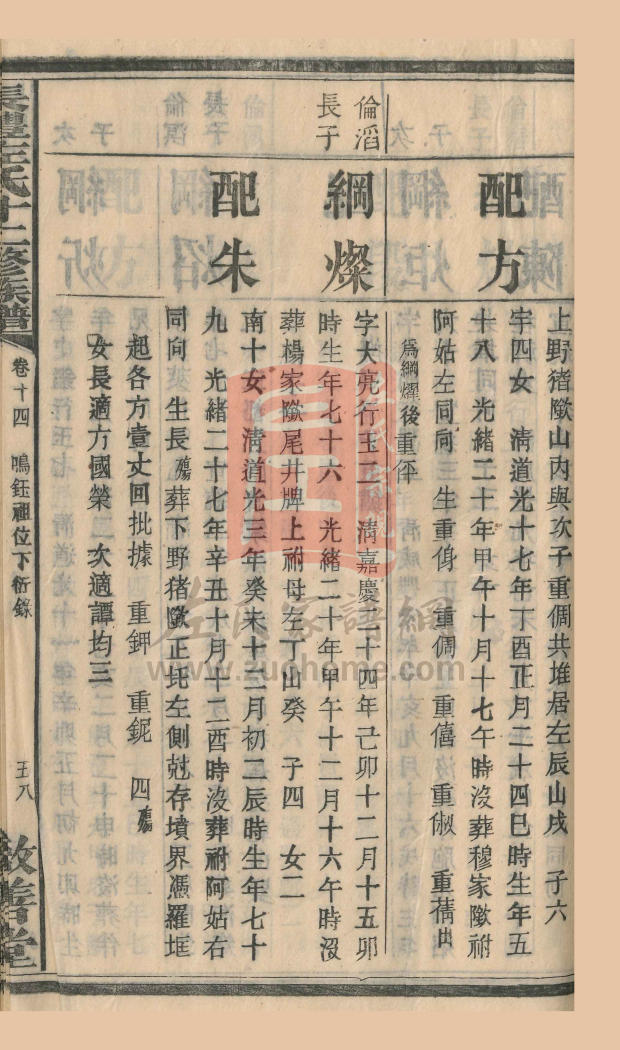 上野猪㘭山內與次子重倜共堆居左辰山戌 子六
配方
宇四女 淸道光十七年丁酉正月二十四巳時生年五
十八 光緖二十年甲午十月十七午時沒葬穆家㘭祔
阿姑左同向 生重傷 重倜 重僖 重俶 重蒨出
爲綱燿後重伻
倫滔
長子
綱燦
字大亮行玉 淸嘉慶二十四年己卯十二月十五卯
時生年七十六 光緖二十年甲午十二月十六午時沒
葬楊家㘭尾井牌上祔母左丁山癸 子四 女二
配朱
南十女 淸道光三年癸未十二月初二辰時生年七十
九 光緖二十七年辛丑十月十二酉時沒葬祔阿姑右
同向 生長殤葬下野猪㘭正圫左側尅存墳界憑羅堩
起各方壹丈回批據 重鉀 重鈮 四殤
女長適方國榮 次適譚均三
長豐左氏十二修族譜
卷十四 鳴鈺祖位下衍錄
五八
敦善堂
左氏家譜網
www.zuohome.com